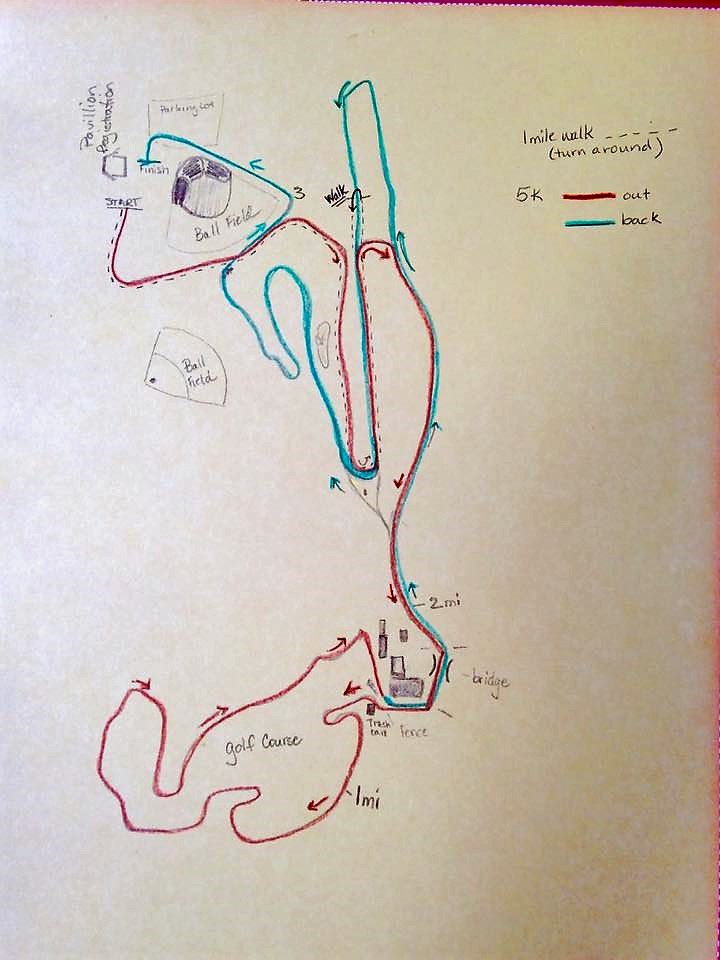 Pavillion
Registration
Parking Lot
Finish
START
Ball Field
3
Walk
1 mile walk
(turn around)
5K
out
back
Ball
Field
2mi
bridge
Trash
Fence
golf Course
1mi